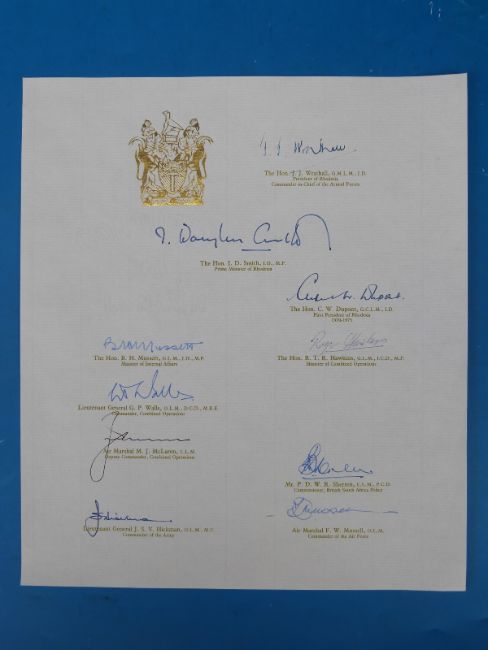 J. J. Wrathall.
The Hon. J. J. Wrathall, G.M.L.M., I.D.
President of Rhodesia
Commander-in-Chief of the Armed Forces
I. Douglas Smith
The Hon. I. D. Smith, I.D., M.P.
Prime Minister of Rhodesia
Clifford W. Dupont.
The Hon. C. W. Dupont, G.C.L.M., I.D.
First President of Rhodesia
1970-1975
B H Mussett
The Hon. B. H. Mussett, O.L.M., I.D., M.P.
Minister of Internal Affairs
Roger Hawkins
The Hon. R. T. R. Hawkins, G.L.M., I.C.D., M.P.
Minister of Combined Operations
Walls
Lieutenant General G. P. Walls, G.L.M., D.C.D., M.B.E
Commander, Combined Operations
Air Marshal M. J. McLaren, C.L.M.
Deputy Commander, Combined Operations
Mr. P. D. W. R. Sherren, C.L.M., P.C.D.
Commissioner, British South Africa Police
J Hickman
Lieutenant General J. S. V. Hickman, O.L.M., M.C.
Commander of the Army
Mussell
Air Marshal F. W. Mussell, O.L.M.
Commander of the Air Force